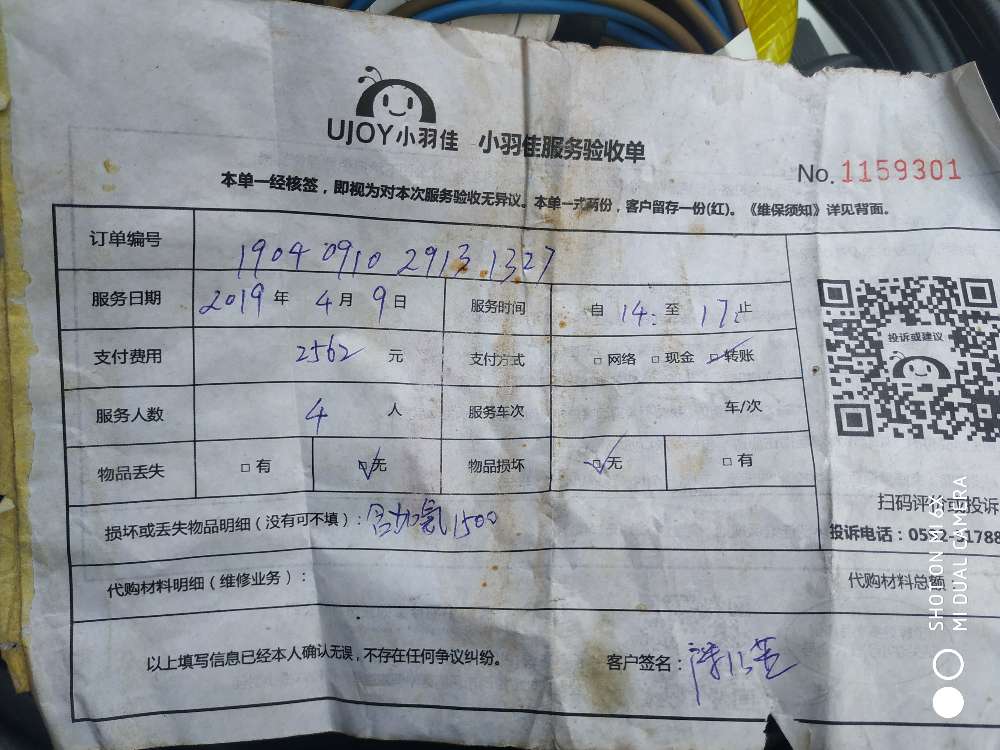 UJOY小羽佳 小羽佳服务验收单
No. 1159301
本单一经核签，即视为对本次服务验收无异议。本单一式两份，客户留存一份(红)。《维保须知》详见背面。
订单编号 1904 0910 2913 1327
服务日期 2019 年 4 月 9 日 服务时间 自 14: 至 17: 止
支付费用 2562 元 支付方式 □ 网络 □ 现金 ☑ 转账
服务人数 4 人 服务车次 车/次
物品丢失 □ 有 ☑ 无 物品损坏 ☑ 无 □ 有
投诉或建议
扫码评价或投诉
投诉电话：0592-5178
损坏或丢失物品明细（没有可不填）：含加氟 1500
代购材料明细（维修业务）： 代购材料总额：
以上填写信息已经本人确认无误，不存在任何争议纠纷。 客户签名：
SHOT ON MI 6X
MI DUAL CAMERA